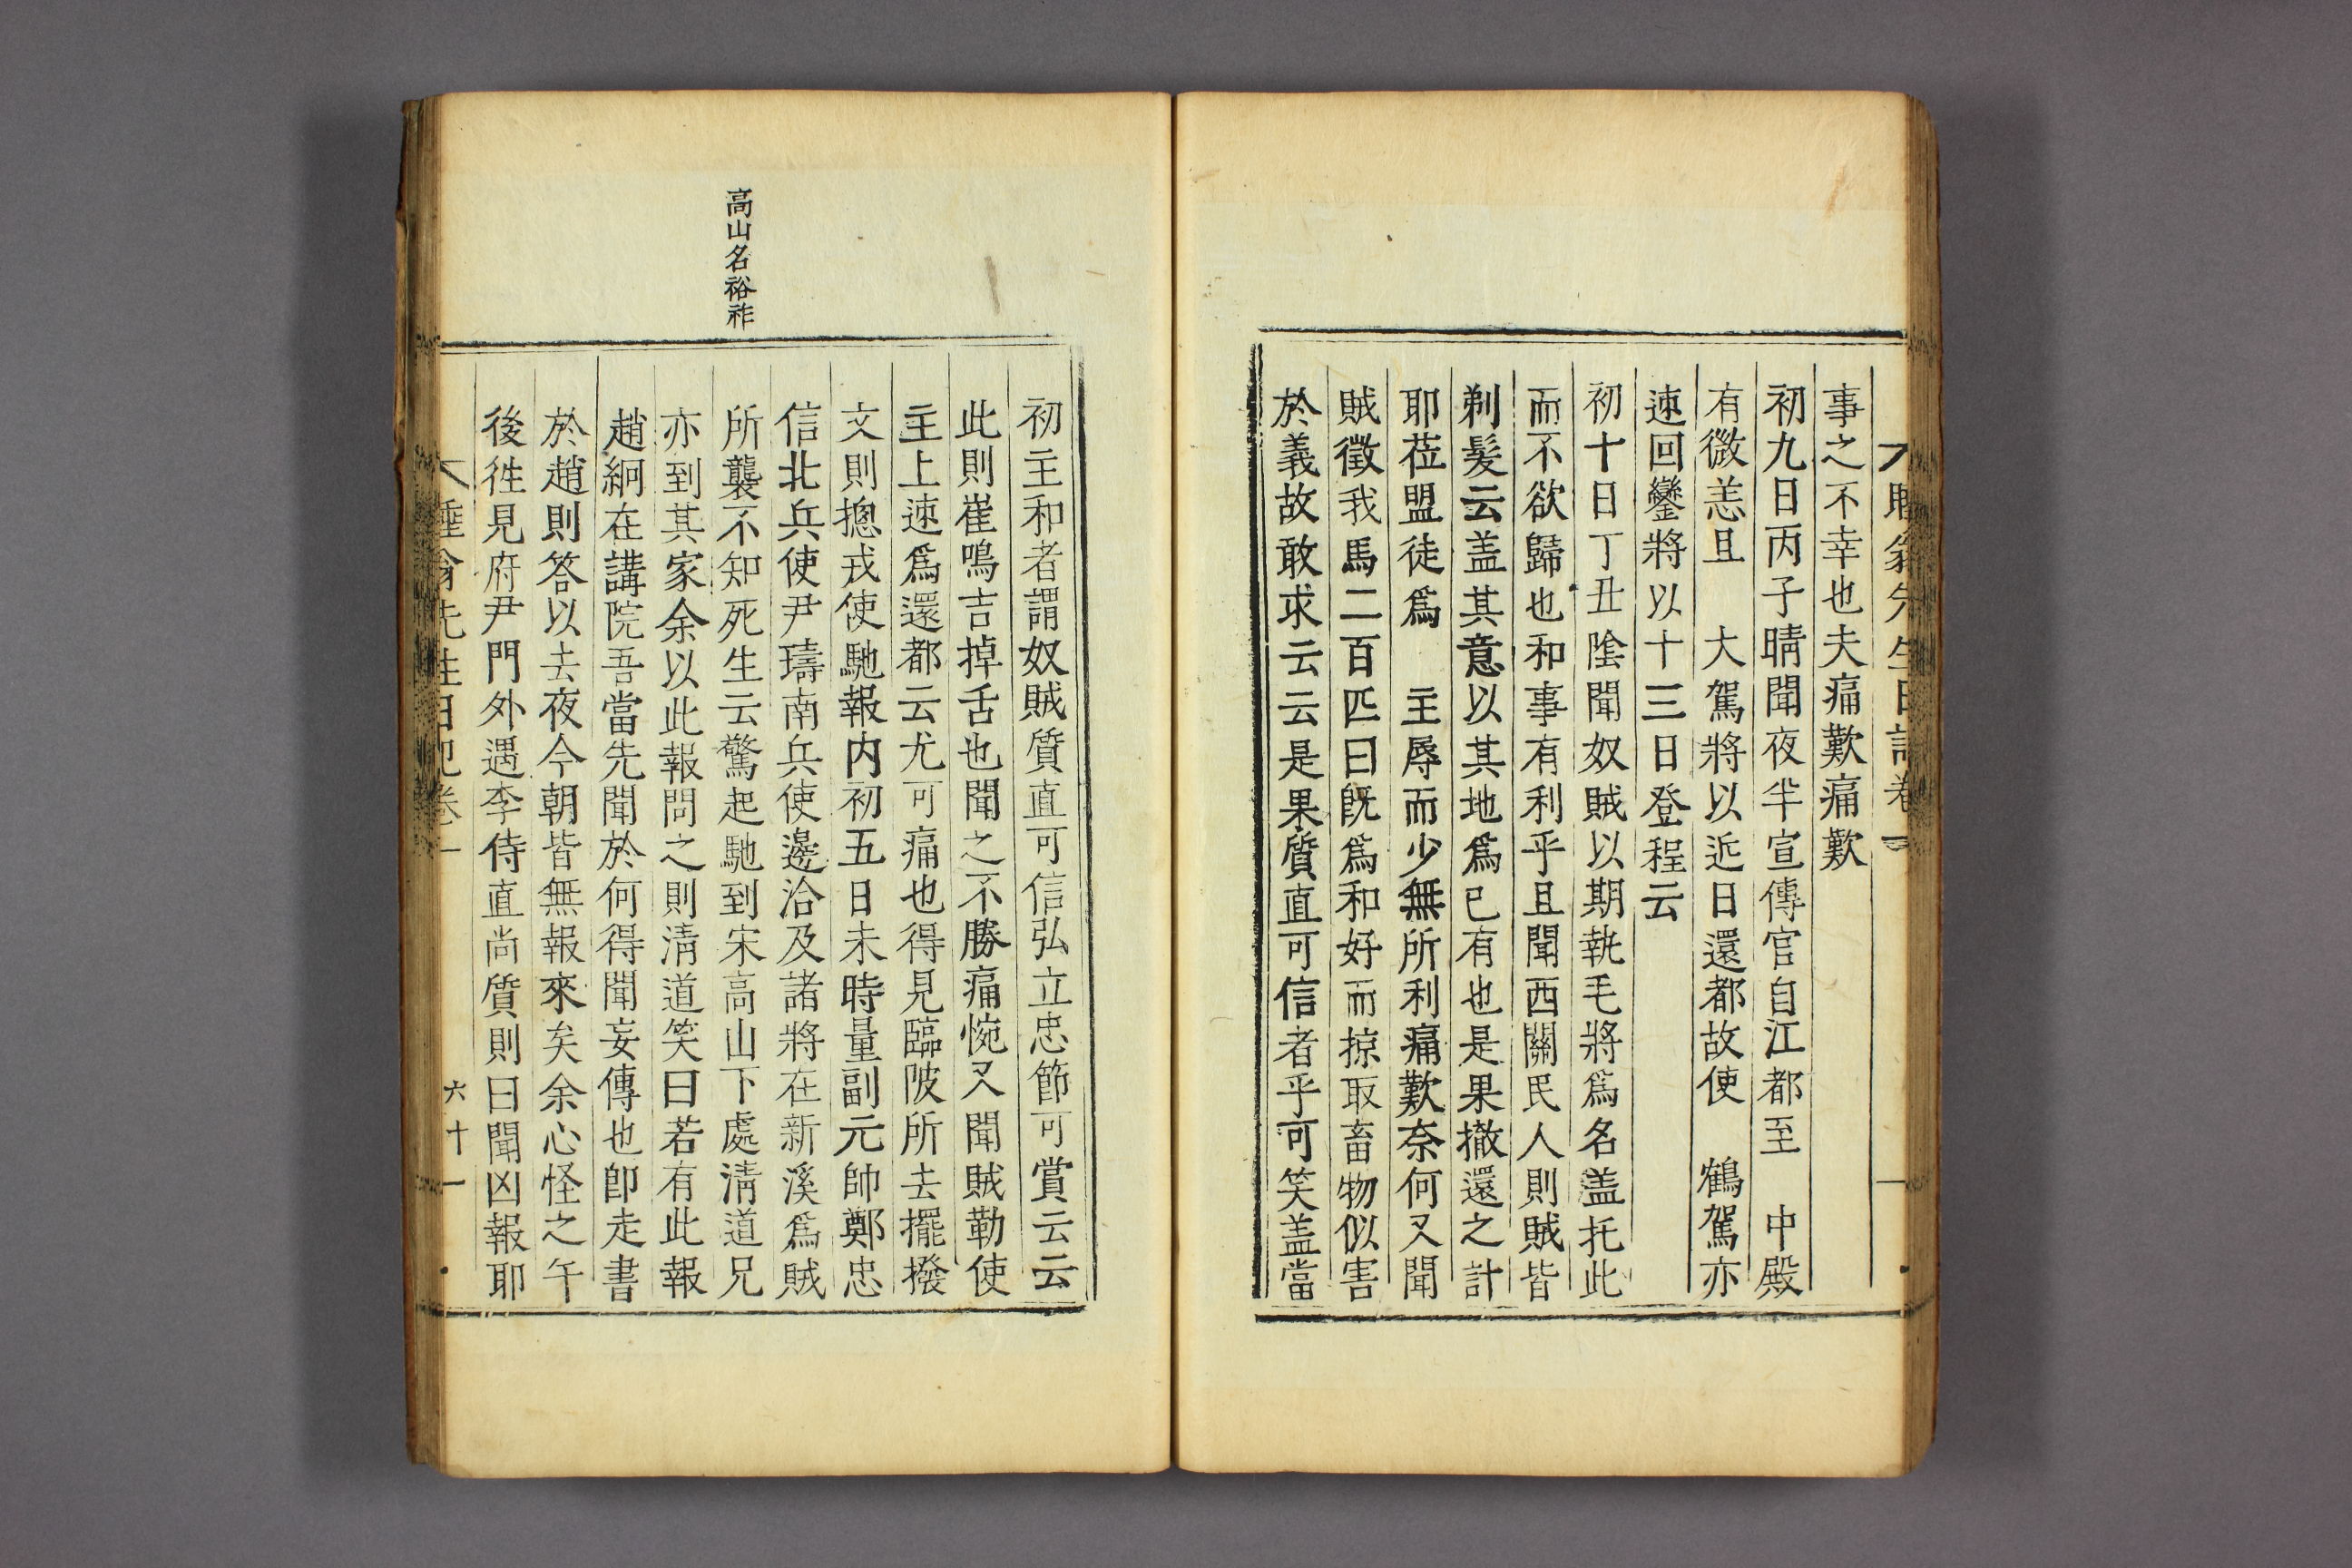 事之不幸也夫痛歎痛歎
初九日丙子晴聞夜半宣傳官自江都至　中殿
有微恙且　大駕將以近日還都故使　鶴駕亦
速回鑾將以十三日登程云
初十日丁丑陰聞奴賊以期執毛將爲名盖托此
而不欲歸也和事有利乎且聞西關民人則賊皆
剃髮云盖其意以其地爲已有也是果撤還之計
耶莅盟徒爲　主辱而少無所利痛歎奈何又聞
賊徵我馬二百匹曰旣爲和好而掠取畜物似害
於義故敢求云云是果質直可信者乎可笑盖當
初主和者謂奴賊質直可信弘立忠節可賞云云
此則崔鳴吉掉舌也聞之不勝痛惋又聞賊勒使
主上速爲還都云尤可痛也得見臨陂所去擺撥
文則摠戎使馳報内初五日未時量副元帥鄭忠
信北兵使尹璹南兵使邊洽及諸將在新溪爲賊
所襲不知死生云驚起馳到宋高山下處淸道兄
亦到其家余以此報問之則淸道笑曰若有此報
趙絅在講院吾當先聞於何得聞妄傳也卽走書
於趙則答以去夜今朝皆無報來矣余心怪之午
後徃見府尹門外遇李侍直尙質則曰聞凶報耶
高山名裕祚
睡翁先生日記卷一
六十一